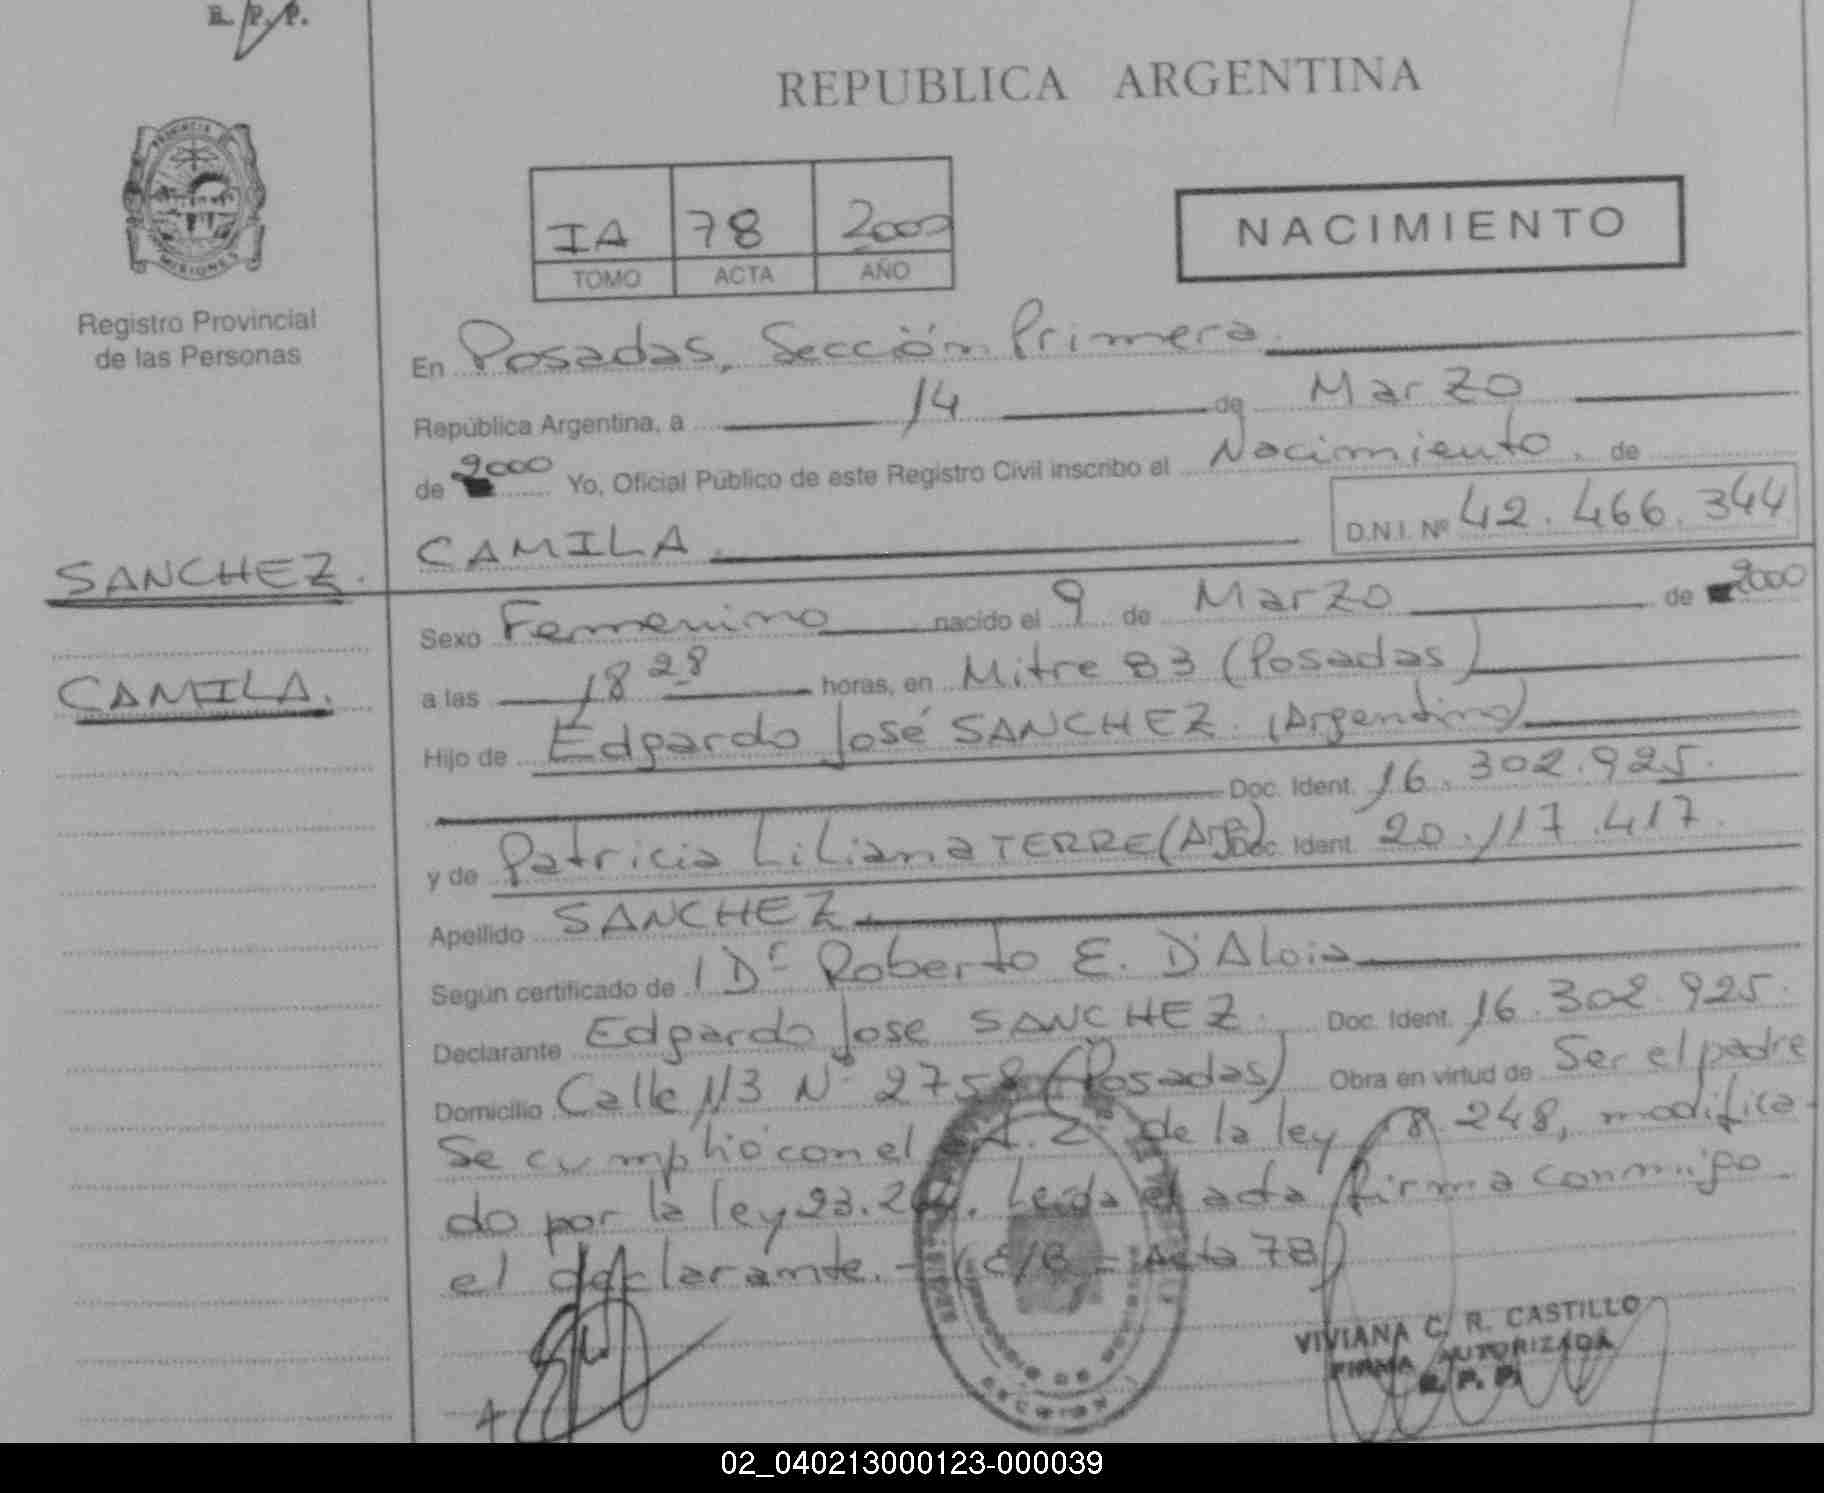 R. P. P.
REPUBLICA ARGENTINA
PROVINCIA
MISIONES
Registro Provincial
de las Personas
IA 78 2000
TOMO ACTA AÑO
NACIMIENTO
En Posadas, Sección Primera.
República Argentina, a 14 de Marzo
de 2000 Yo, Oficial Público de este Registro Civil inscribo el Nacimiento. de
CAMILA. D.N.I. Nº 42.466.344
SANCHEZ.
CAMILA.
Sexo Femenino nacido el 9 de Marzo de 2000
a las 18 28 horas, en Mitre 83 (Posadas)
Hijo de Edgardo José SANCHEZ. (Argentino)
Doc. Ident. 16.302.925.
y de Patricia Liliana TERRE (Arg) Doc. Ident. 20.117.417.
Apellido SANCHEZ.
Según certificado de Dr Roberto E. D'Aloia
Declarante Edgardo Jose SANCHEZ. Doc. Ident. 16.302.925.
Domicilio Calle 113 Nº 2758 (Posadas) Obra en virtud de Ser el padre
Se cumplió con el de la ley 18.248, modifica-
do por la ley Leida el acta firma conmigo
el declarante. - Acta 78
VIVIANA C. R. CASTILLO
FIRMA AUTORIZADA
R. P. P.
02_040213000123-000039